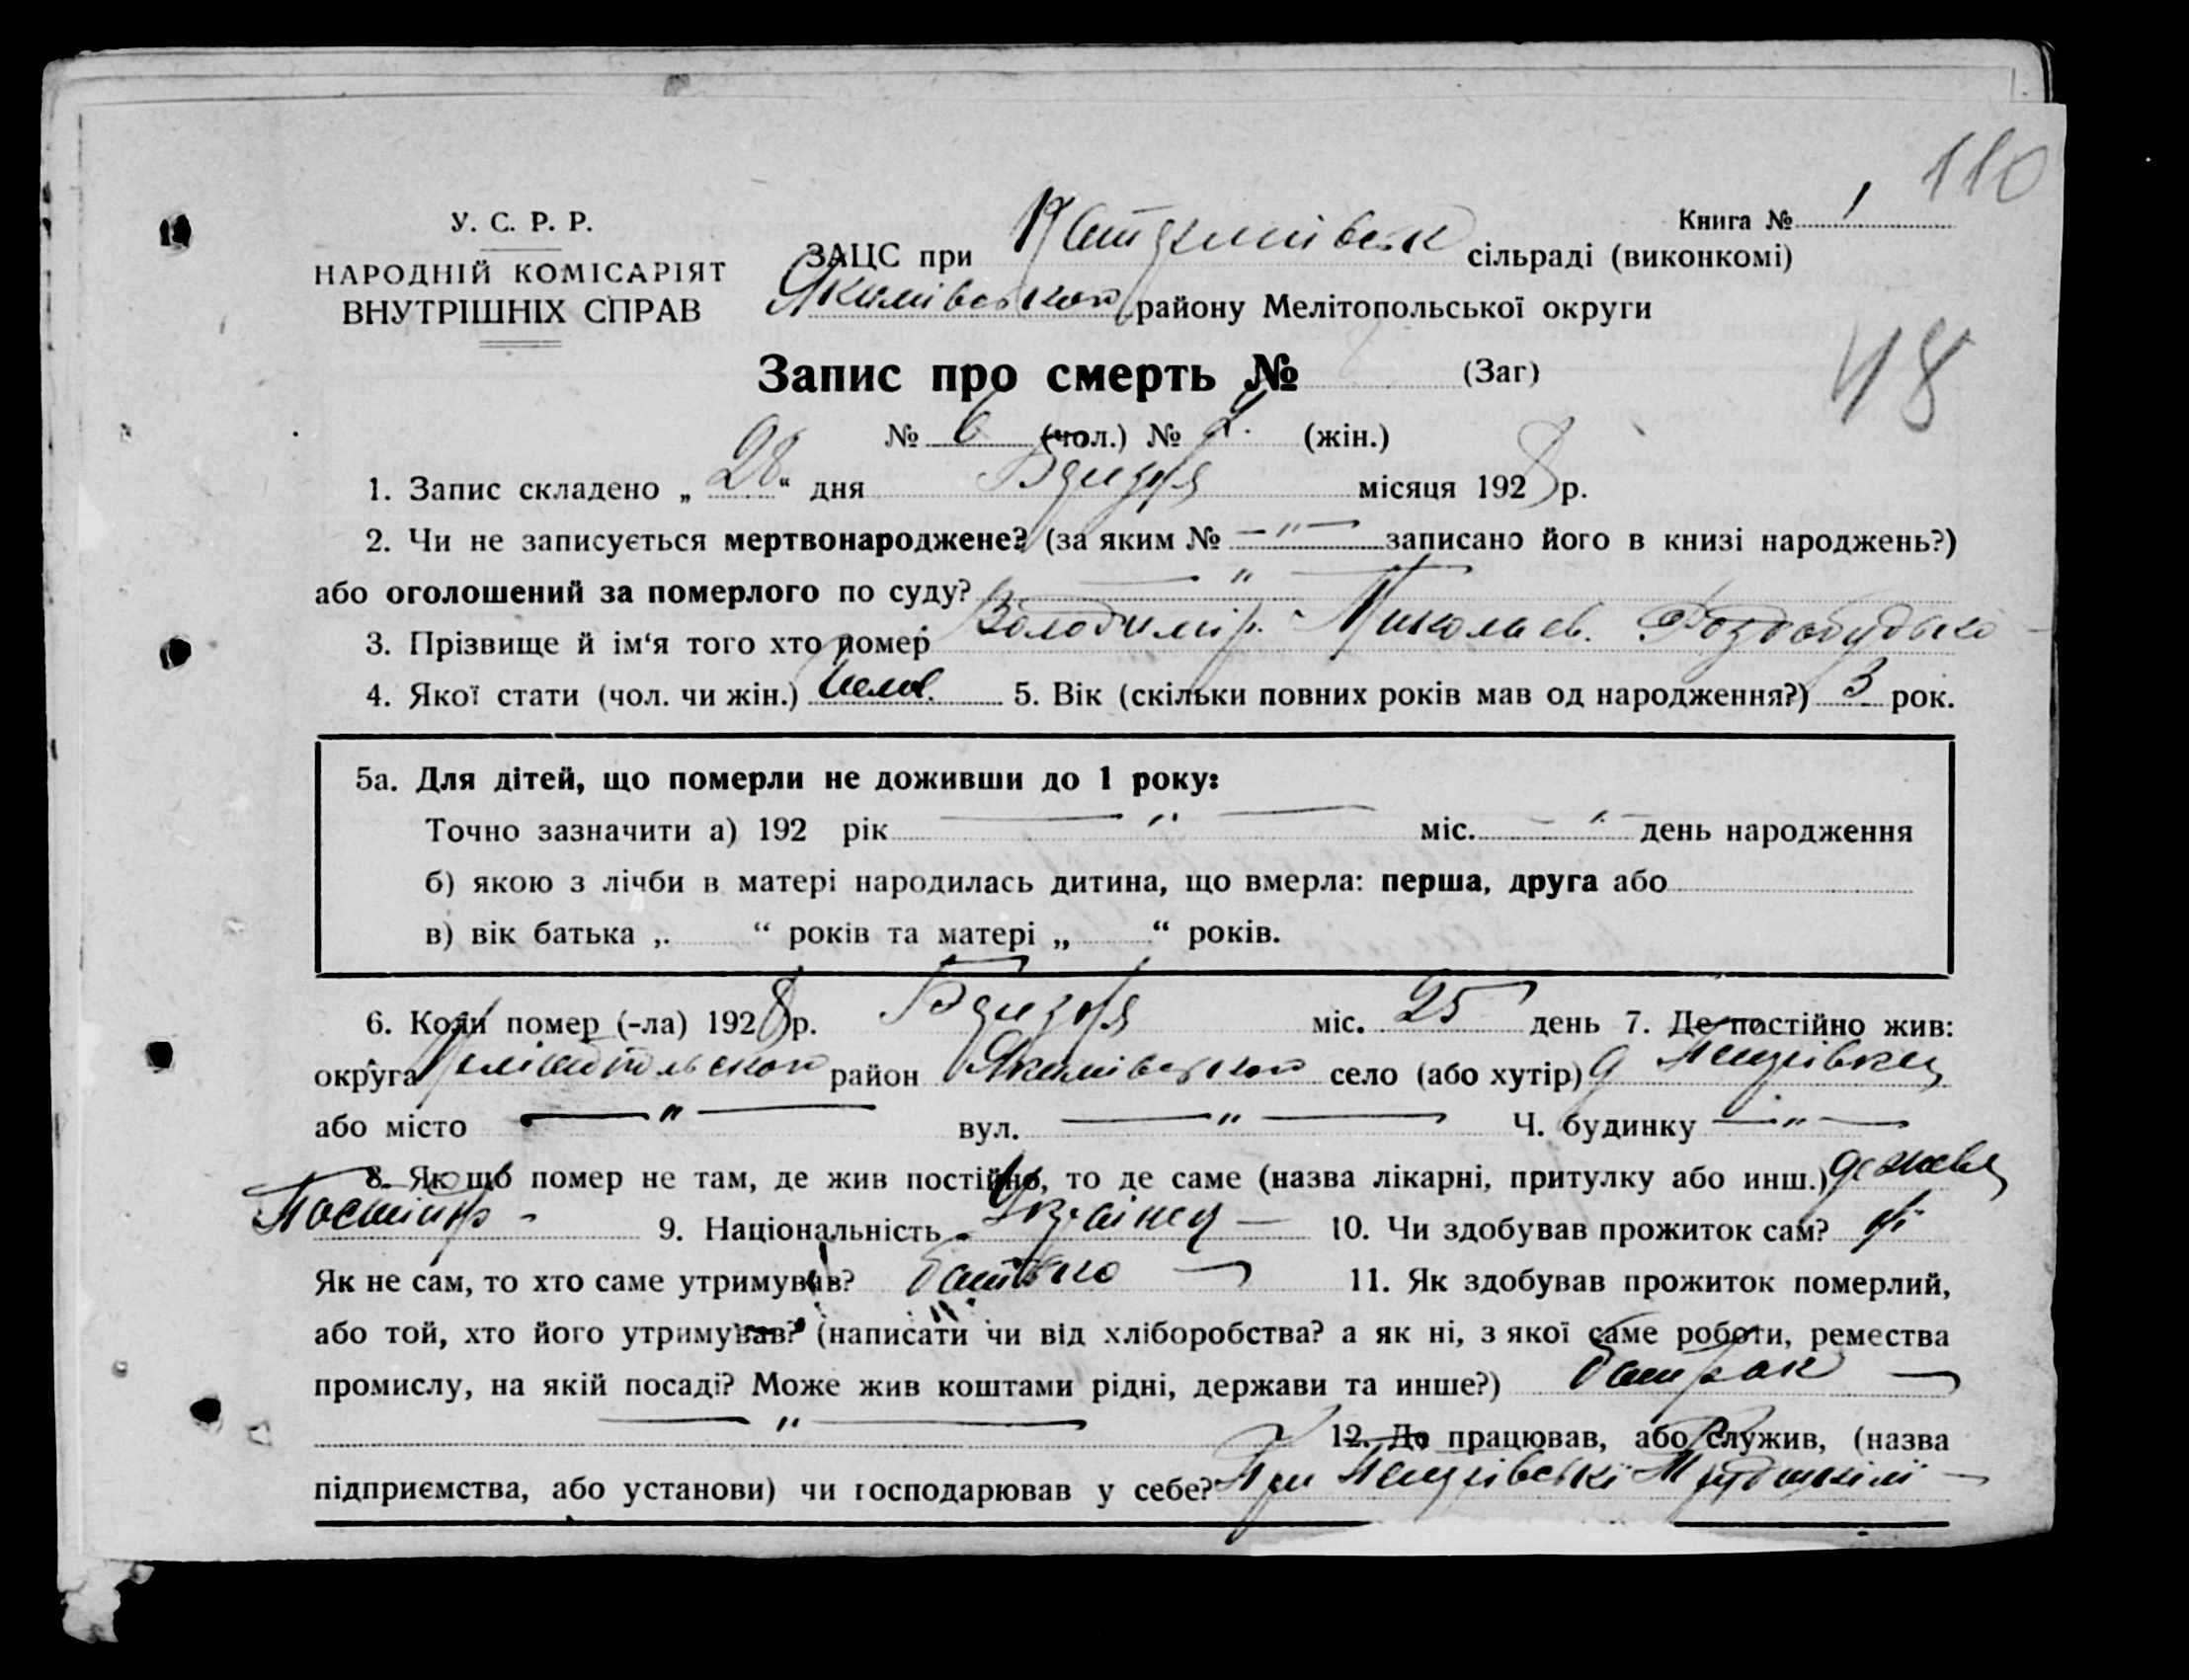 110
У. С. Р. Р.
НАРОДНІЙ КОМІСАРІЯТ
ВНУТРІШНІХ СПРАВ
Книга № 1
ЗАЦС при сільраді (виконкомі)
Якимівского району Мелітопольської округи
48
Запис про смерть № (Заг)
№ 6 (чол.) № (жін.)
1. Запис складено „ 28 “ дня місяця 1928 р.
2. Чи не записується мертвонароджене? (за яким № —"— записано його в книзі народжень?)
або оголошений за померлого по суду? — " —
3. Прізвище й ім‘я того хто помер Володимір. Миколаєв. Роздобудько
4. Якої стати (чол. чи жін.) 5. Вік (скільки повних років мав од народження?) 3 рок.
5а. Для дітей, що померли не доживши до 1 року:
Точно зазначити а) 192 рік — " — міс. — " — день народження
б) якою з лічби в матері народилась дитина, що вмерла: перша, друга або
в) вік батька „ “ років та матері „ “ років.
6. Коли помер (-ла) 1928 р. міс. 25 день 7. Де постійно жив:
округа Мелітопольского район Якимівского село (або хутір)
або місто — " — вул. — " — Ч. будинку — " —
8. Як що помер не там, де жив постійно, то де саме (назва лікарні, притулку або инш.) де жив
Постійно - 9. Національність Українец — 10. Чи здобував прожиток сам? ні
Як не сам, то хто саме утримував? батько — 11. Як здобував прожиток померлий,
або той, хто його утримував? (написати чи від хліборобства? а як ні, з якої саме роботи, ремества
промислу, на якій посаді? Може жив коштами рідні, держави та инше?) батрак —
— " — 12. Де працював, або служив, (назва
підприємства, або установи) чи господарював у себе? При